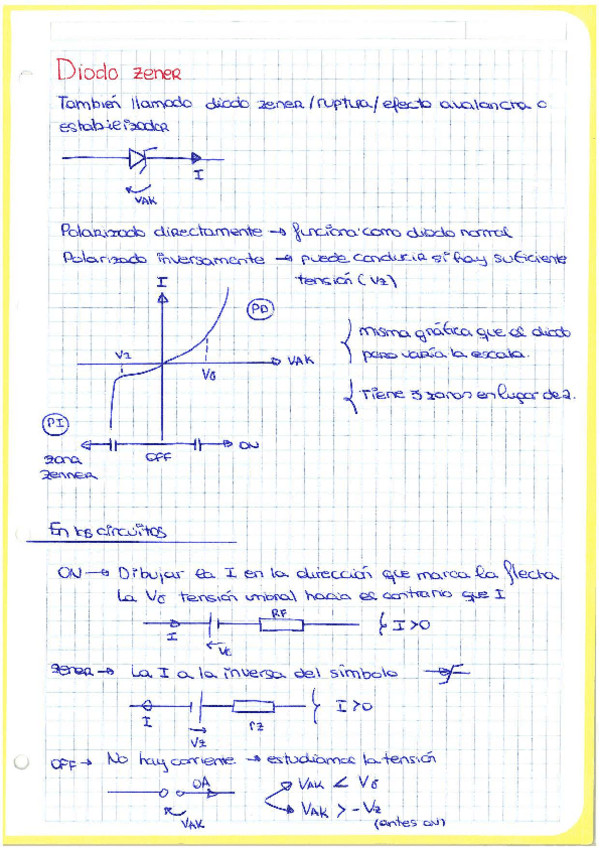 Diodo zener
También llamado diodo zener/ruptura/efecto avalancha o
estabilizador
I
VAK
Polarizado directamente → funciona como diodo normal
Polarizado inversamente → puede conducir si hay suficiente
tensión (Vz)
I
PD
Vz
VAK
Vγ
misma gráfica que el diodo
pero varía la escala.
Tiene 3 zonas en lugar de 2.
PI
ON
zona
zenner
OFF
En los circuitos
ON → Dibujar la I en la dirección que marca la flecha
La Vγ tensión umbral hacia el contrario que I
RF
I
I>0
Vγ
zener → La I a la inversa del símbolo
I
I>0
rz
Vz
OFF → No hay corriente → estudiamos la tensión
0A
VAK < Vγ
VAK
VAK > -Vz
(antes ON)